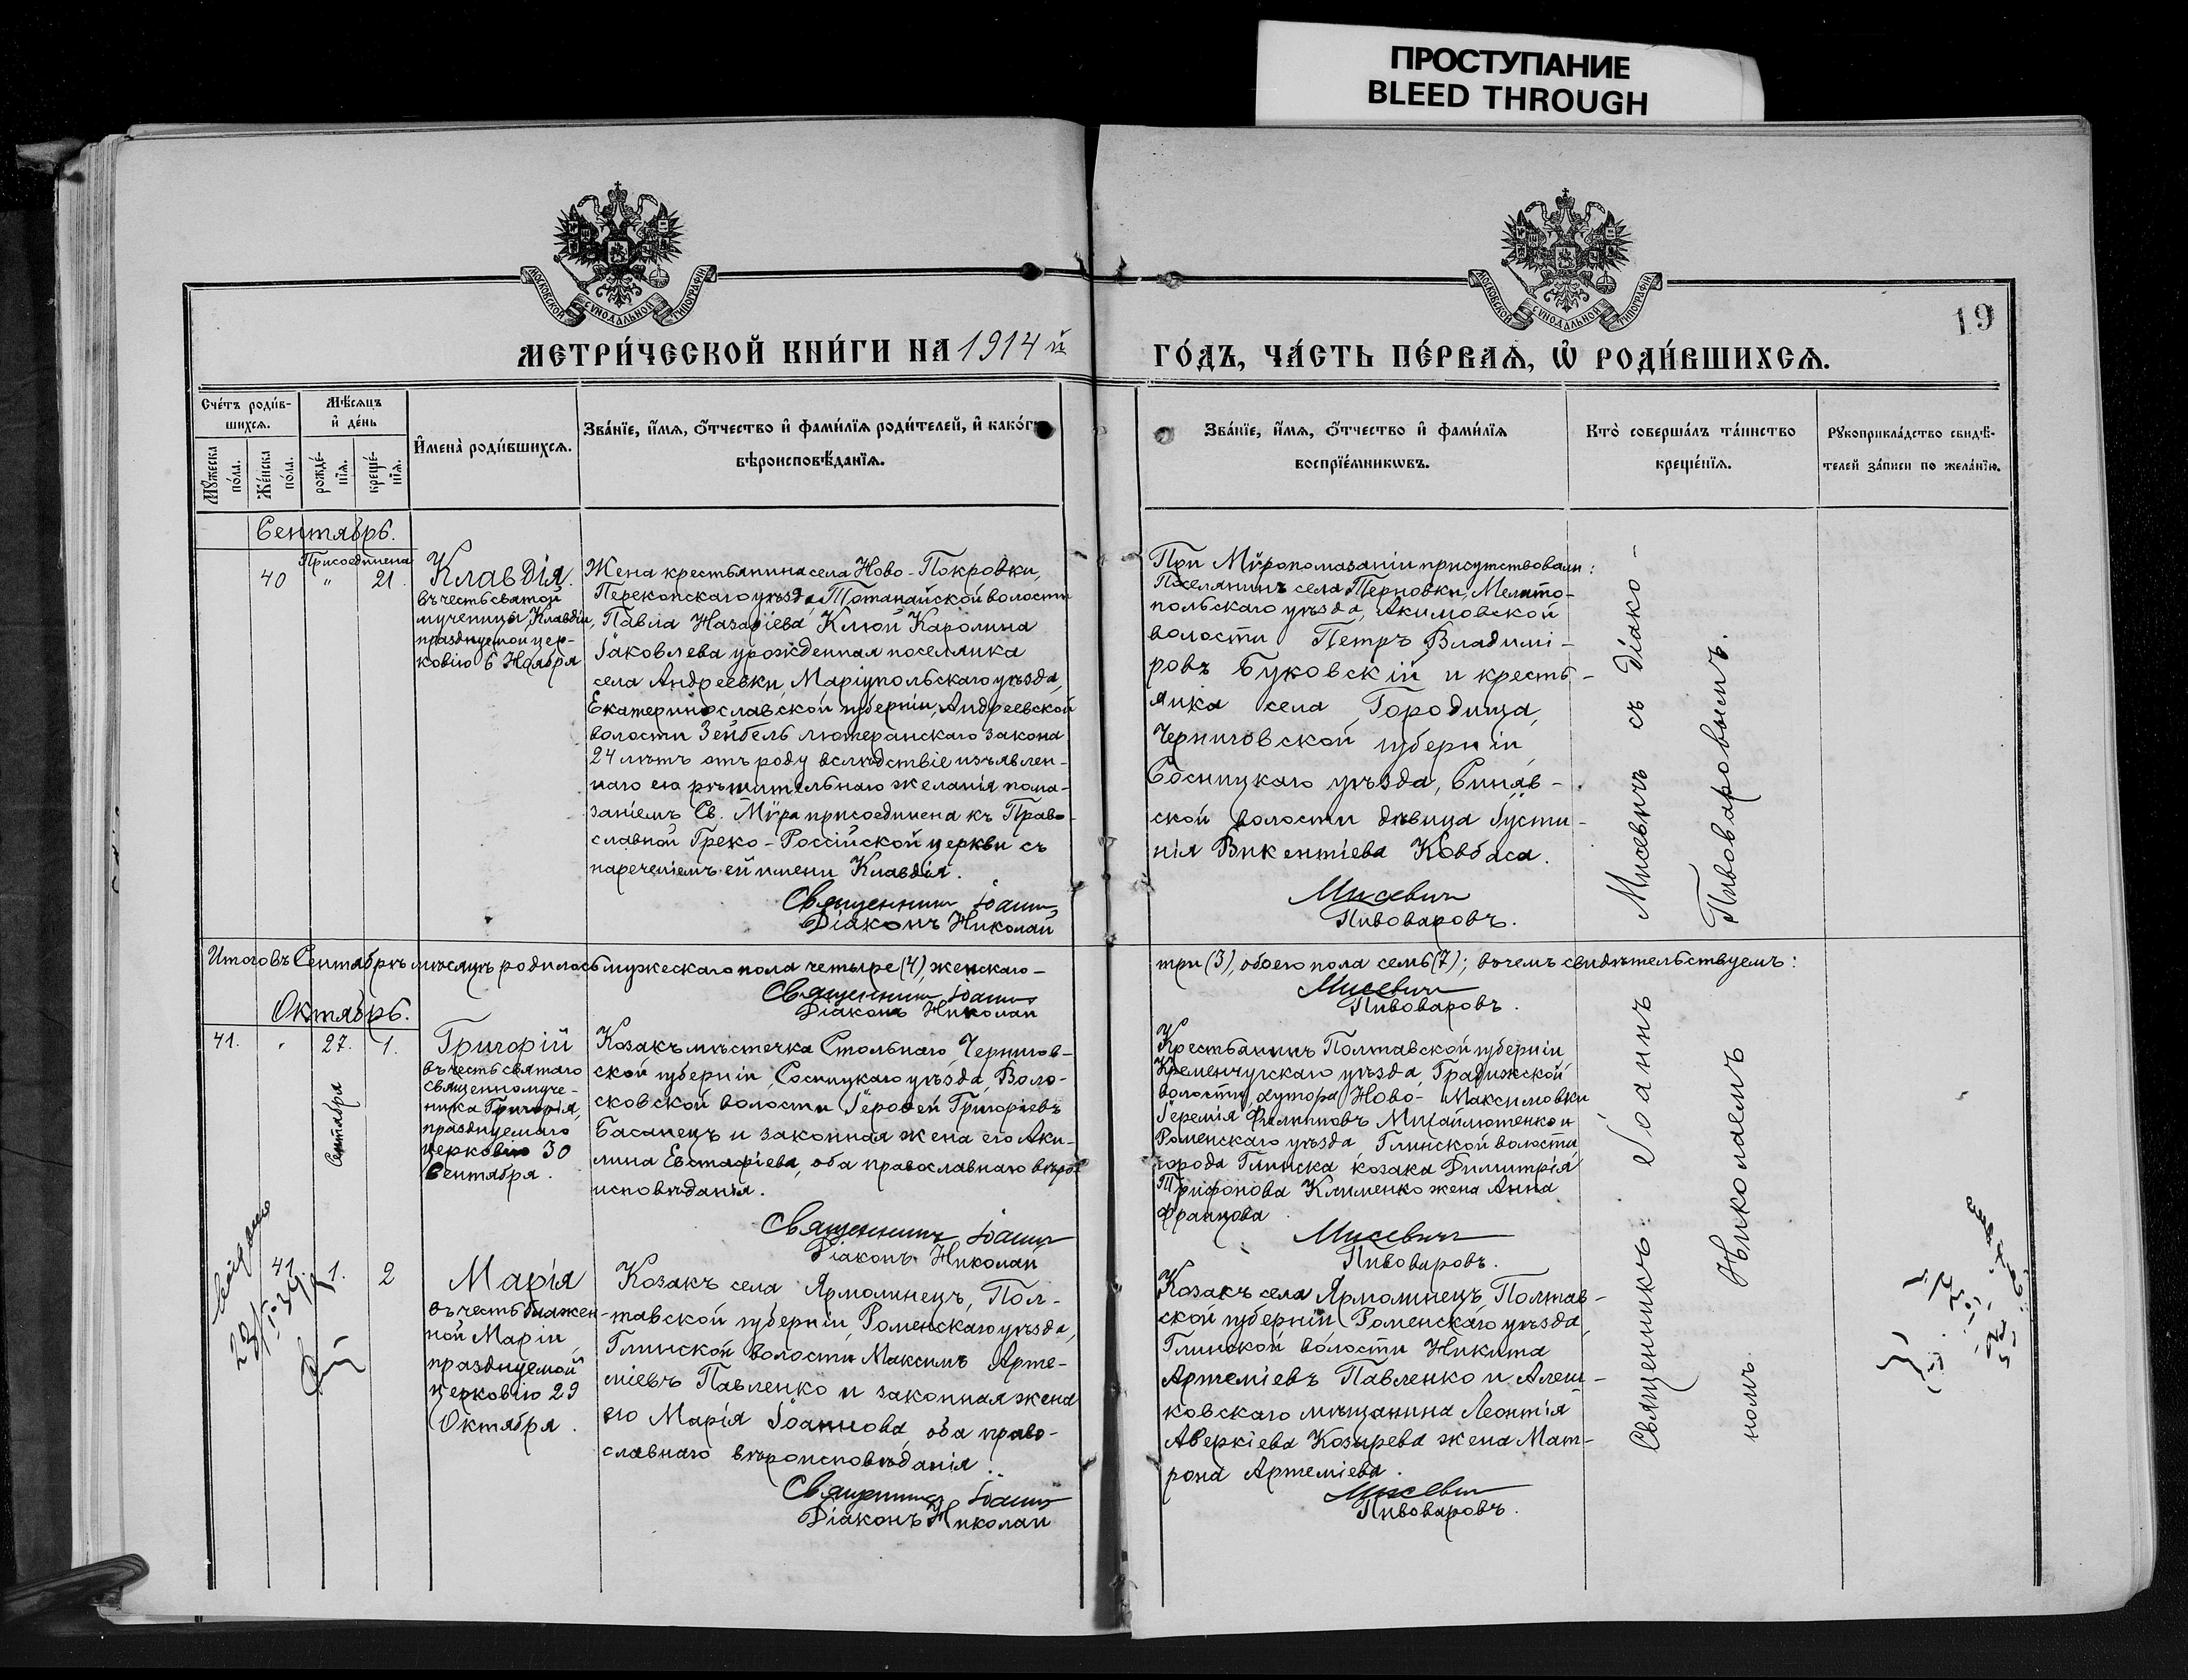 ПРОСТУПАНИЕ
BLEED THROUGH
МОСКОВСКОЙ СѴНОДАЛЬНОЙ ТИПОГРАФІИ
МОСКОВСКОЙ СѴНОДАЛЬНОЙ ТИПОГРАФІИ
19
МЕТРИ́ЧЕСКОЙ КНИ́ГИ НА 1914 й
ГО́ДЪ, ЧА́СТЬ ПЕ́РВАѦ, Ѡ҆ РОДИ́ВШИХСѦ.
Сче́тъ роди́в-
шихсѧ.
Мꙋ́жеска по́ла.
Же́нска по́ла.
Мѣ́сѧцъ
и҆ де́нь
рожде́-
нїѧ.
креще́-
нїѧ.
И҆мена̀ роди́вшихсѧ.
Зва́нїе, и҆́мѧ, ѻ҆́тчество и҆ фами́лїѧ роди́телей, и҆ како́гѡ
вѣроисповѣ́данїѧ.
Зва́нїе, и҆́мѧ, ѻ҆́тчество и҆ фами́лїѧ
воспрїе́мникѡвъ.
Кто̀ соверша́лъ та́инство
креще́нїѧ.
Рꙋкоприкла́дство свидѣ́-
телей за́писи по жела́нїю.
Сентябрь.
Присоединена
40 " 21.
Клавдія.
въ честь святой
мученицы Клавдіи,
празднуемой цер-
ковію 6 Ноября
Жена крестьянина села Ново-Покровки,
Перекопскаго уѣзда, Тотанайской волости
Павла Назаріева Клюй Каролина
Іаковлева урожденная поселянка
села Андреевки, Маріупольскаго уѣзда,
Екатеринославской губерніи, Андреевской
волости Зейбель лютеранскаго закона
24 лѣтъ отъ роду вслѣдствіе изъявлен-
наго ею рѣшительнаго желанія пома-
заніемъ Св. Мѵра присоединена къ Право-
славной Греко-Россійской церкви съ
нареченіемъ ей имени Клавдія.
Священникъ Іоаннъ
Діаконъ Николай
При Мѵропомазаніи присутствовали:
Поселянинъ села Терновки, Мелито-
польскаго уѣзда, Акимовской
волости Петръ Владимі-
ровъ Буковскій и кресть-
янка села Городища,
Черниговской губерніи
Сосницкаго уѣзда, Синяв-
ской волости дѣвица Іусти-
нія Викентіева Ковбаса.
Мисевичъ
Пивоваровъ.
Итого въ Сентябрѣ мѣсяцѣ родилось мужескаго пола четыре (4), женскаго-
три (3), обоего пола семь (7); въ чемъ свидѣтельствуемъ:
Священникъ Іоаннъ
Діаконъ Николай
Мисевичъ
Пивоваровъ.
Октябрь.
41. " 27. 1.
Сентября
Григорій
въ честь святаго
священномуче-
ника Григорія,
празднуемаго
церковію 30
Сентября.
Козакъ мѣстечка Стольнаго, Чернигов-
ской губерніи, Сосницкаго уѣзда, Воло-
сковской волости Іерофей Григоріевъ
Басанецъ и законная жена его Аки-
лина Евстафіева, оба православнаго вѣро-
исповѣданія.
Священникъ Іоаннъ
Діаконъ Николай
Крестьянинъ Полтавской губерніи
Кременчугскаго уѣзда, Градижской
волости, хутора Ново-Максимовки
Іеремія Филипповъ Михайлютенко и
Роменскаго уѣзда, Глинской волости,
города Глинска козака Димитрія
Трифонова Клименко жена Анна
Францова
Мисевичъ
Пивоваровъ.
41. 1. 2
Марія
въ честь блажен-
ной Маріи,
празднуемой
церковію 29
Октября.
Козакъ села Ярмолинецъ, Пол-
тавской губерніи, Роменскаго уѣзда,
Глинской волости Максимъ Арте-
міевъ Павленко и законная жена
его Марія Іоаннова, оба право-
славнаго вѣроисповѣданія.
Священникъ Іоаннъ
Діаконъ Николай
Козакъ села Ярмолинецъ, Полтав-
ской губерніи, Роменскаго уѣзда,
Глинской волости Никита
Артеміевъ Павленко и Алеш-
ковскаго мѣщанина Леонтія
Аверкіева Козырева жена Мат-
рона Артеміева.
Мисевичъ
Пивоваровъ.
Священникъ: Іоаннъ Мисевичъ съ діако-
номъ Николаемъ Пивоваровымъ.